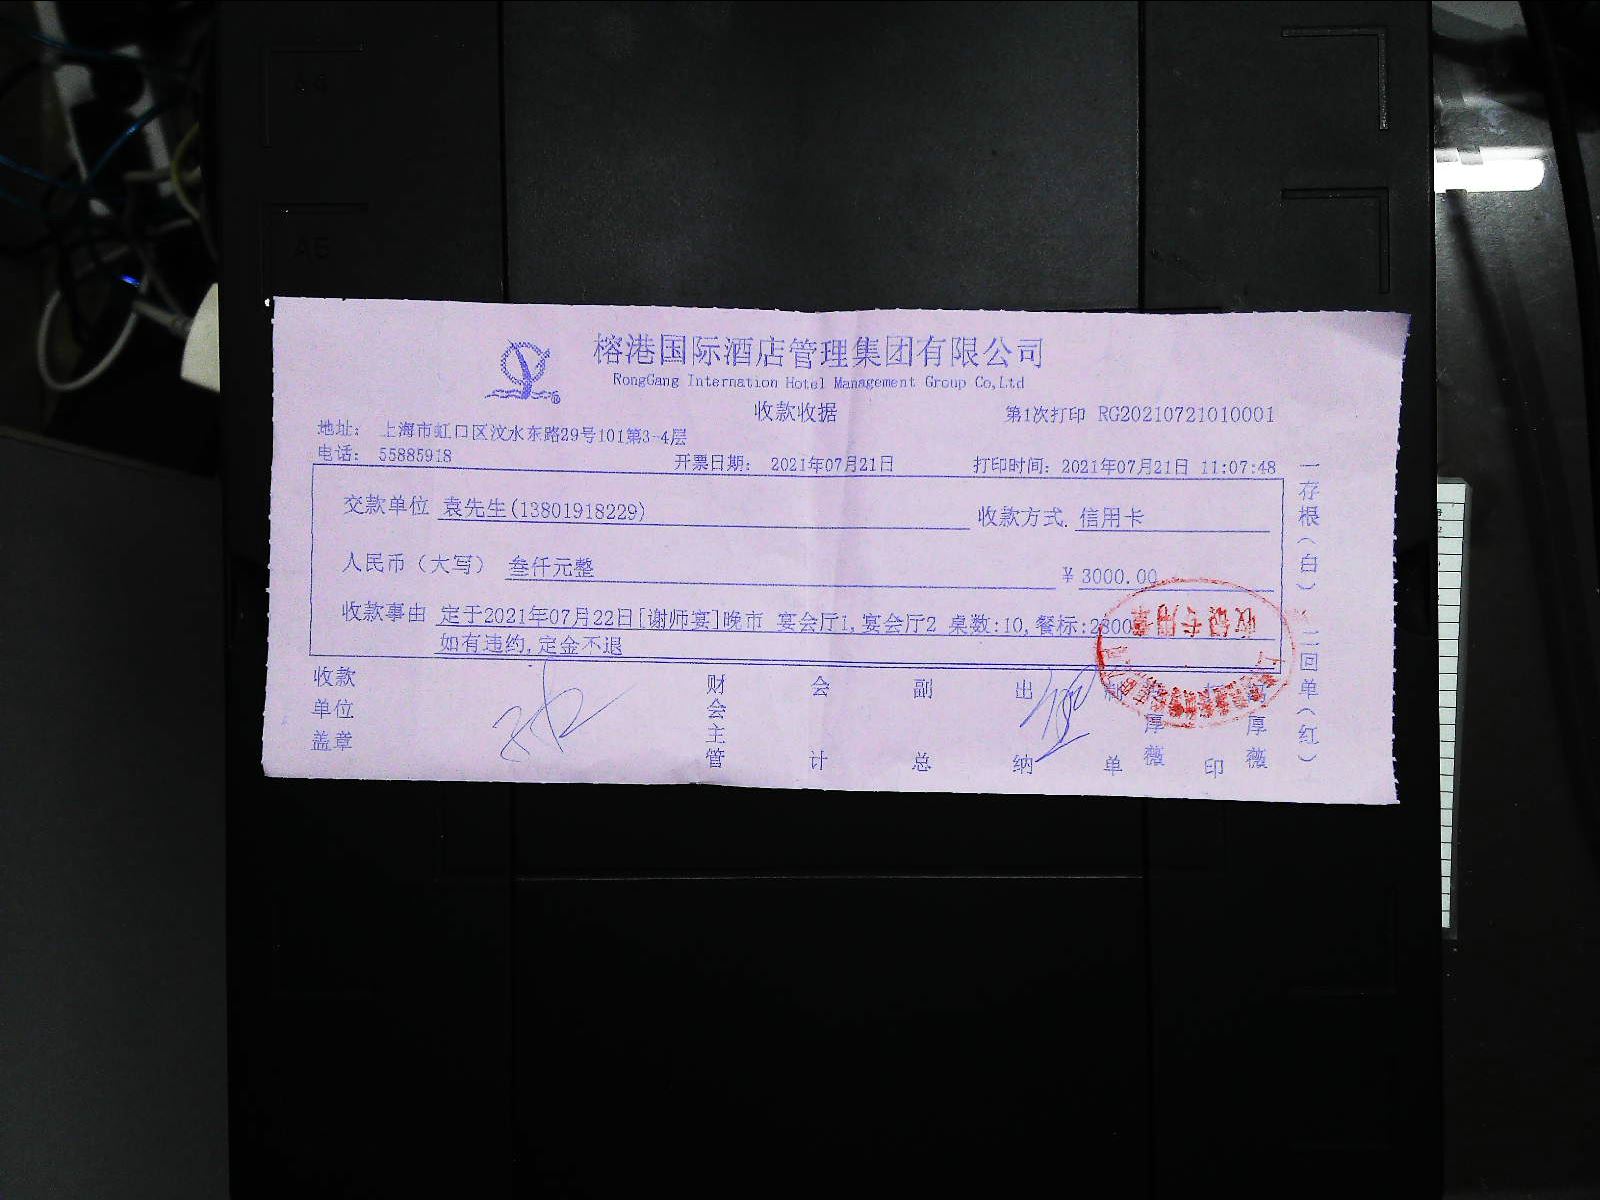 榕港国际酒店管理集团有限公司
RongGang Internation Hotel Management Group Co,Ltd
收款收据
第1次打印 RG20210721010001
地址: 上海市虹口区汶水东路29号101第3-4层
电话: 55885918
开票日期: 2021年07月21日
打印时间: 2021年07月21日 11:07:48
交款单位 袁先生(13801918229)
收款方式. 信用卡
人民币(大写) 叁仟元整
¥ 3000.00
收款事由 定于2021年07月22日[谢师宴]晚市 宴会厅1,宴会厅2 桌数:10,餐标:2800
如有违约,定金不退
一存根(白) 二回单(红)
收款单位盖章
财会主管
会计
副总
出纳
制单
厚薇
打印
厚薇
收银专用章
A5